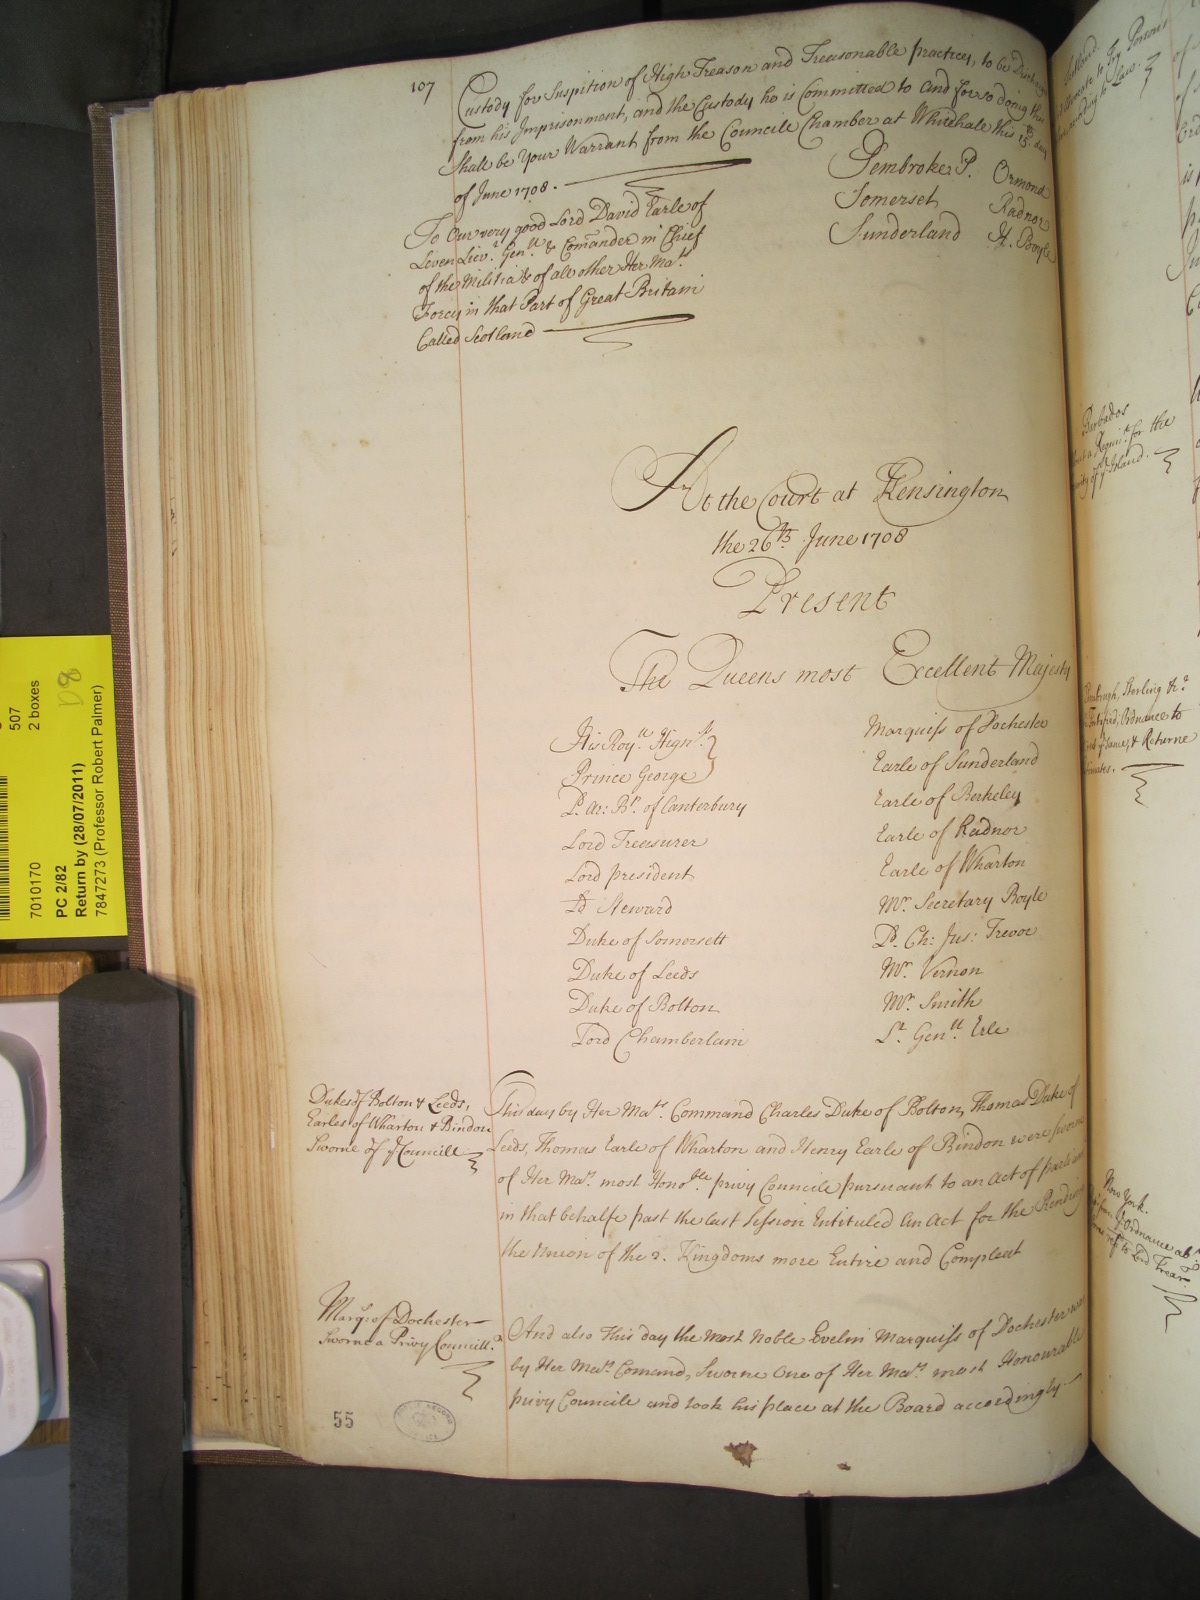 107
Custody for Suspition of High Treason and Treasonable practices, to be
from his Imprisonment, and the Custody he is Committed to and for so doing this
Shall be Your Warrant from the Councile Chamber at Whitehale this 15th day
of June 1708.
Pembroke P. Ormond
Somerset Radnor
Sunderland H. Boyle
To Our very good Lord David Earle of
Leven Lieut. Genll. & Comander in Chief
of the Militia & of all other Her Mats.
Forces in that Part of Great Britain
Called Scotland
At the Court at Kensington
the 26th. June 1708
Present
The Queens most Excellent Majesty
His Royll. Highss.
Prince George
Ld. Ar: Bp. of Canterbury
Lord Treasurer
Lord president
Ld Steward
Duke of Somersett
Duke of Leeds
Duke of Bolton
Lord Chamberlain
Marquiss of Dochester
Earle of Sunderland
Earle of Berkeley
Earle of Radnor
Earle of Wharton
Mr. Secretary Boyle
Ld. Ch: Jus: Trevor
Mr. Vernon
Mr. Smith
Lt. Genll. Erle
Dukes of Bolton & Leeds,
Earles of Wharton & Bindon
Sworne of ye Councill
This day by Her Mats. Command Charles Duke of Bolton, Thomas Duke of
Leeds, Thomas Earle of Wharton and Henry Earle of Bindon were sworne
of Her Mats. most Honoble. privy Councile pursuant to an Act of
in that behalfe past the last Session Entituled An Act for the
the Union of the 2. Kingdoms more Entire and Compleat
Marqs. of Dochester
Sworne a Privy Councillr.
And also this day the most Noble Evelin Marquiss of Dochester was
by Her Mats. Comand, Sworne One of Her Mats. most Honourable
privy Councile and took his place at the Board accordingly
55
Barbados
for the
of ye Island.
Sterling &ca.
Ordnance to
& Returne
New York.
Ordnance
to Lord Trear.
507
2 boxes
7010170
PC 2/82
Return by (28/07/2011)
7847273 (Professor Robert Palmer)